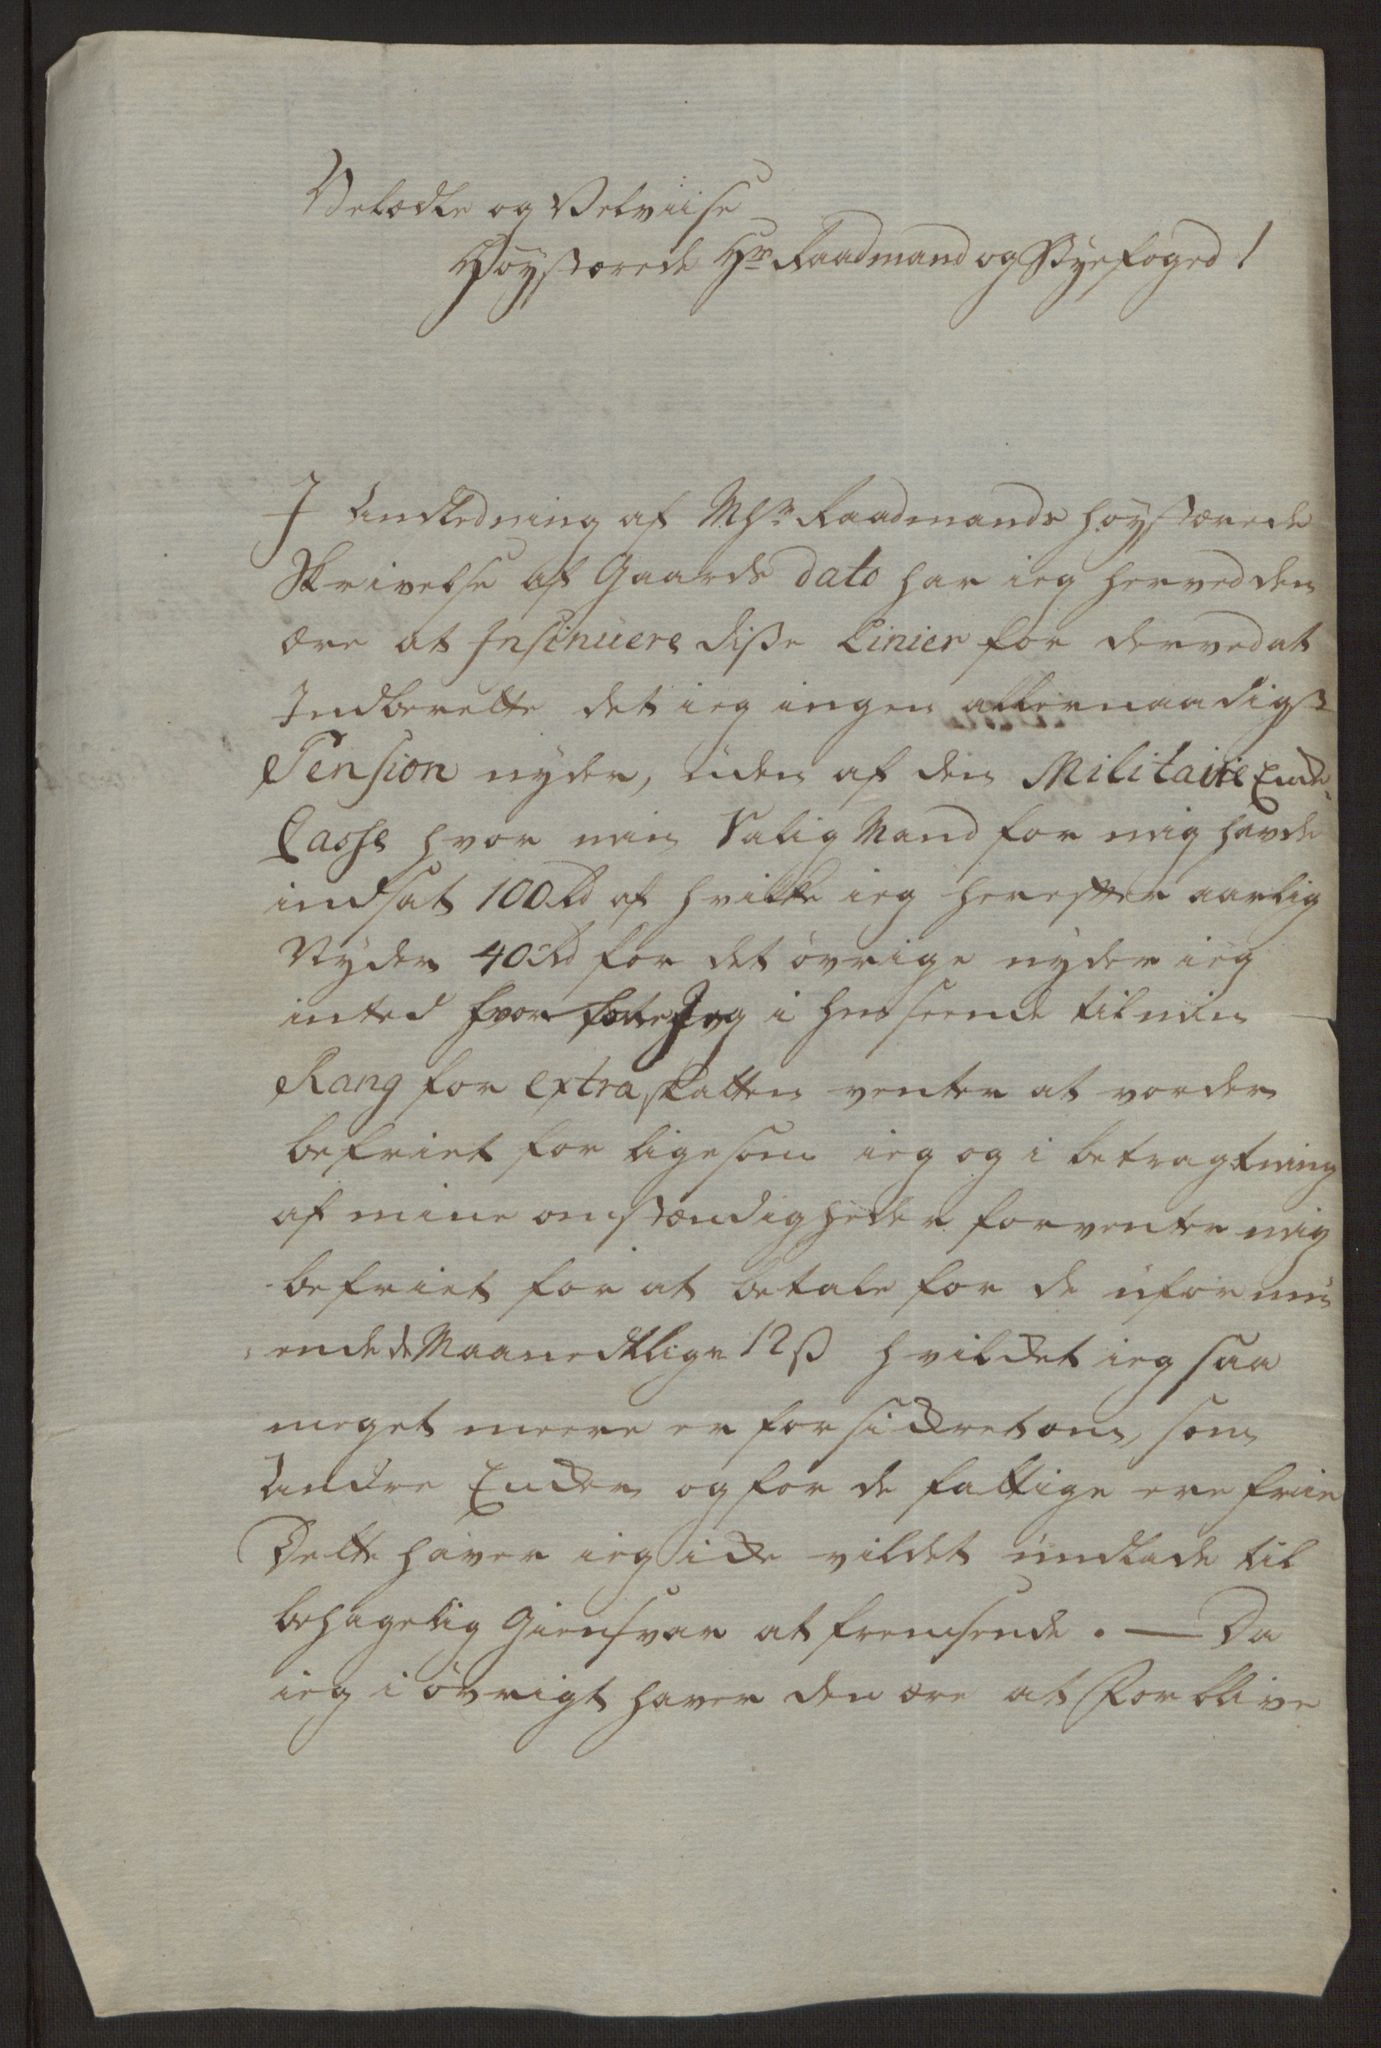 Velædle og Velviise
Høystærede Hr Raadmand og Byefoged!
I Andledning af MHr Raadmands høystærede
Skrivelse af Gaards dato har ieg herved den
ære at Insinuere disse Linier for derved at
Indberette det ieg ingen allernaadigst
Pension nyder, uden af den Militaire Enke
Casse hvor min Salig Mand for mig havde
indsat 100 rd af hvilke ieg herefter aarlig
Nyder 40 rd for det øvrige nyder ieg
inted hvorfore Jeg i henseende til min
Rang for extra skatten venter at vorder
befriet for ligesom ieg og i betragtning
af mine omstændigheder forventer mig
befriet for at betale for de uformu
ende de Maanedtlige 12 ß hvilcket ieg saa
meget meere er forsickret om, som
Andre Encker og for de fattige ere frie
Dette haver ieg icke vildet undlade til
behagelig Giensvar at fremsende. — Da
ieg i øvrigt haver den ære at Forblive